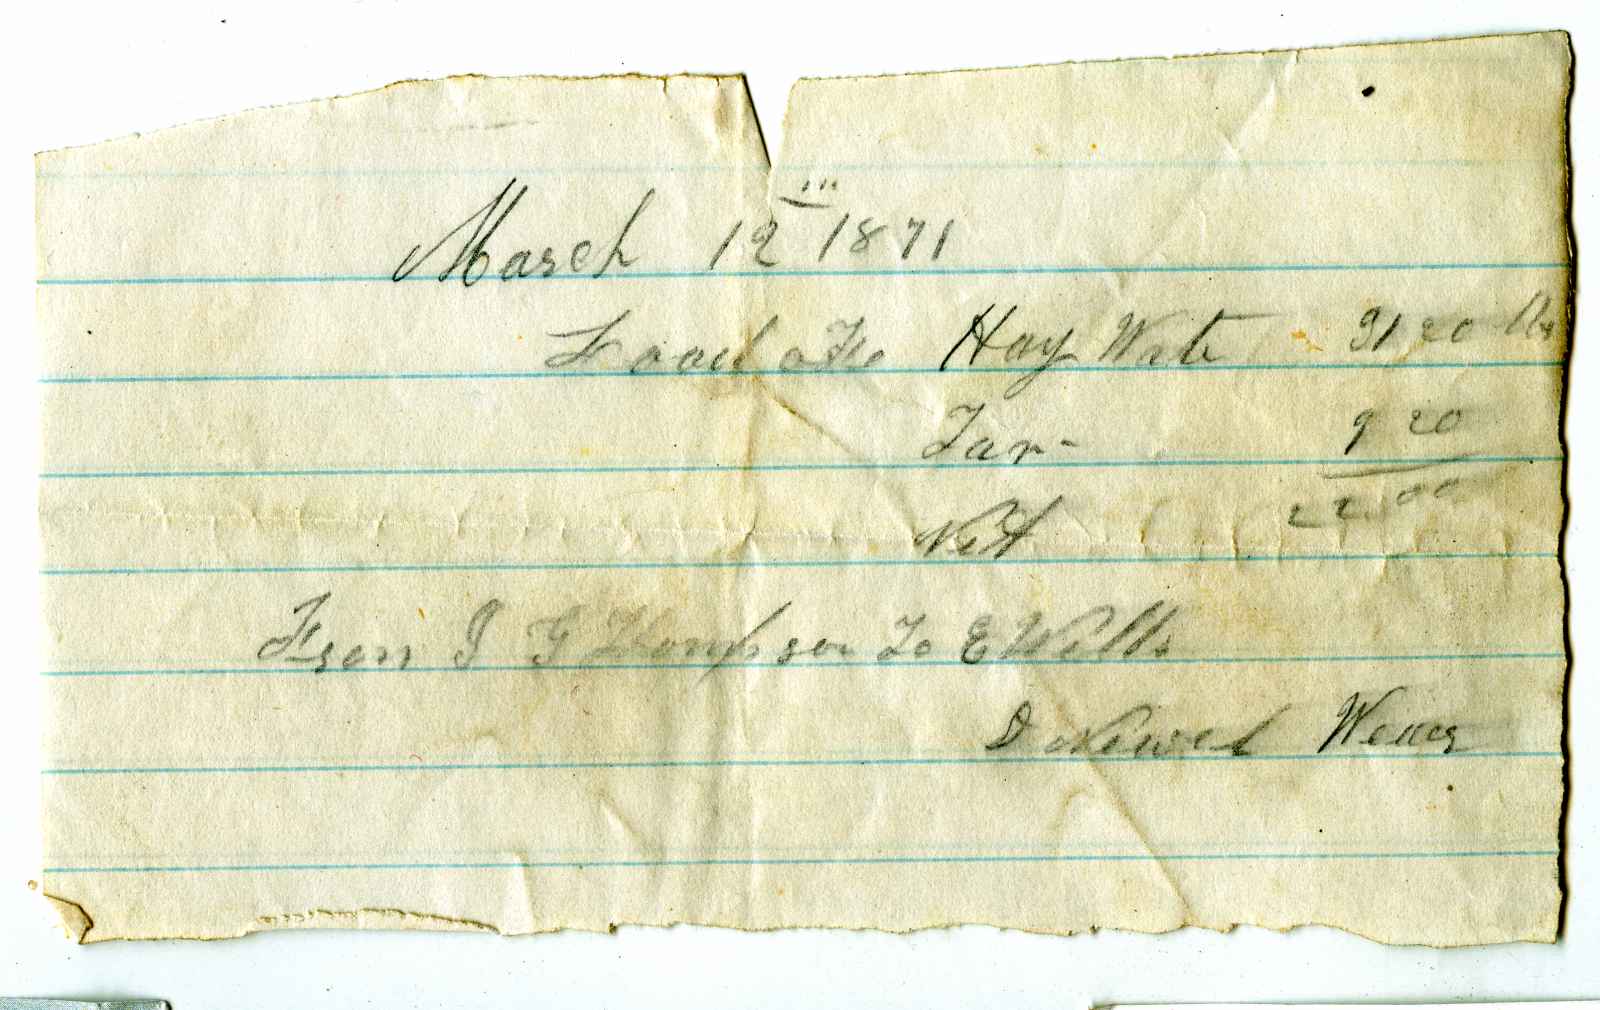 March 12 1871
Load of Hay Wate 3120 lbs
Tar- 920
Net 2200
From J G Thompson To E Wells
D Newel Weer